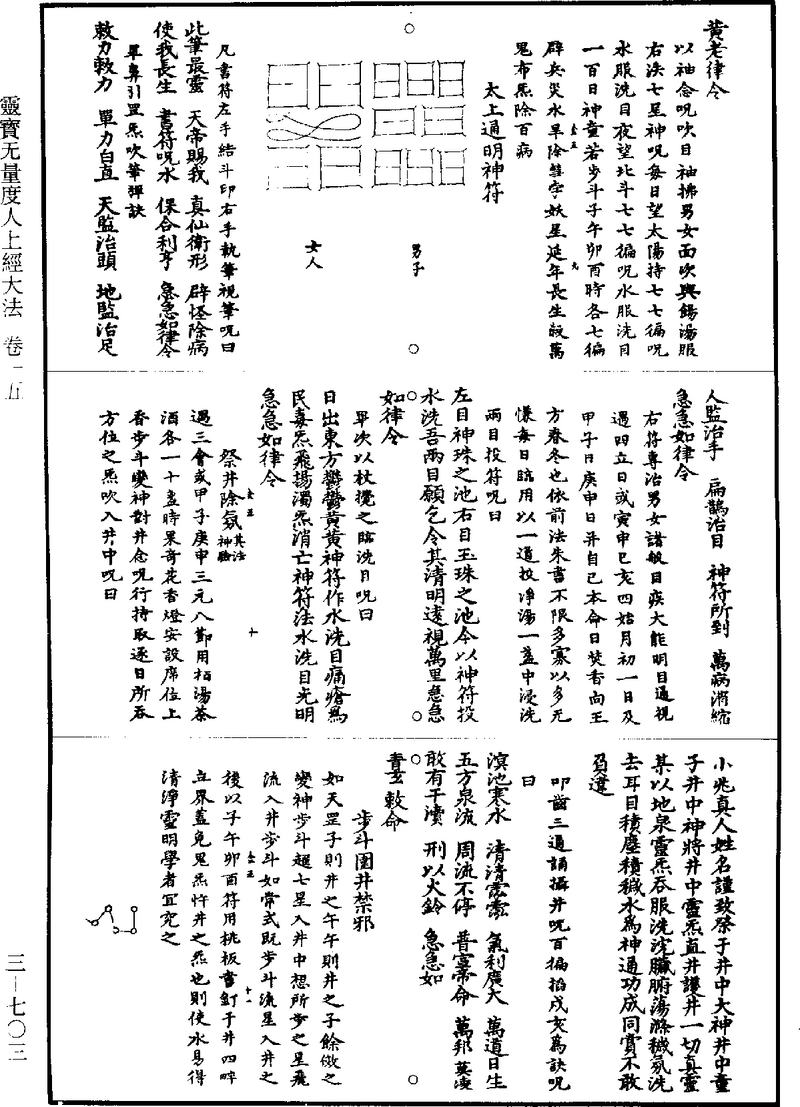 黃老律令
以袖念呪吹目袖拂男女面吹與錫湯服
右泆七星神呪每日望太陽持七七徧呪
水服洗目夜望北斗七七徧呪水服洗目
一百日神童若步斗子午卯酉時各七徧
辟兵災水旱除彗孛妖星延年長生
鬼布炁除百病
太上通明神符
男子
女人
凡書符左手結斗印右手執筆視筆呪曰
此筆最靈 天帝賜我 真仙衛形 辟怪除病
使我長生 書符呪水 保合利亨 急急如律令
畢鼻引罡炁吹筆彈訣
敕力敕力 單力自直 天監治頭 地監治足
人監治手 扁鵲治目 神符所到 萬病消縮
急急如律令
右符專治男女諸般目疾大能明目通視
遇四立日或寅申巳亥四始月初一日及
甲子日庚申日并自己本命日焚香向王
方春冬也依前法朱書不限多寡以多元
懷每日臨用以一道投淨湯一盞中浸洗
兩目投符呪曰
左目神珠之池右目玉珠之池今以神符投
水洗吾兩目願乞令其清明遠視萬里急急
如律令
畢次以杖攪之臨洗目呪曰
日出東方鬱鬱黃黃神符作水洗目痛瘡為
民毒炁飛揚濁炁消亡神符法水洗目光明
急急如律令
祭井除氛其法神驗
遇三會或甲子庚申三元八節用栢湯茶
酒各一十盞時果奇花香燈安設席位上
香步斗變神對井念呪行持取逐日所吞
方位之炁吹入井中呪曰
小兆真人姓名謹致祭于井中大神井中童
子井中神將井中靈炁直井護井一切真靈
某以地泉靈炁吞服洗浣臟腑蕩滌穢氛洗
去耳目積塵積穢水為神通功成同賞不敢
召違
叩齒三通誦攝井呪百徧掐戌亥為訣呪
曰
溟池寒水 清清 氣利廣大 萬道日生
五方泉流 周流不停 普 命 萬邦莫凌
敢有干瀆 刑以火鈴 急急如
青玄敕命
步斗圍井禁邪
如天罡子則井之午午則井之子餘倣之
變神步斗躡七星入井中想所步之星飛
流入井步斗如常式既步斗流星入井之
後以子午卯酉符用桃板書釘于井四畔
立界蓋免鬼炁忤井之炁也則使水易得
清淨靈明學者宜究之
靈寶无量度人上經大法 卷十五
三—七〇三